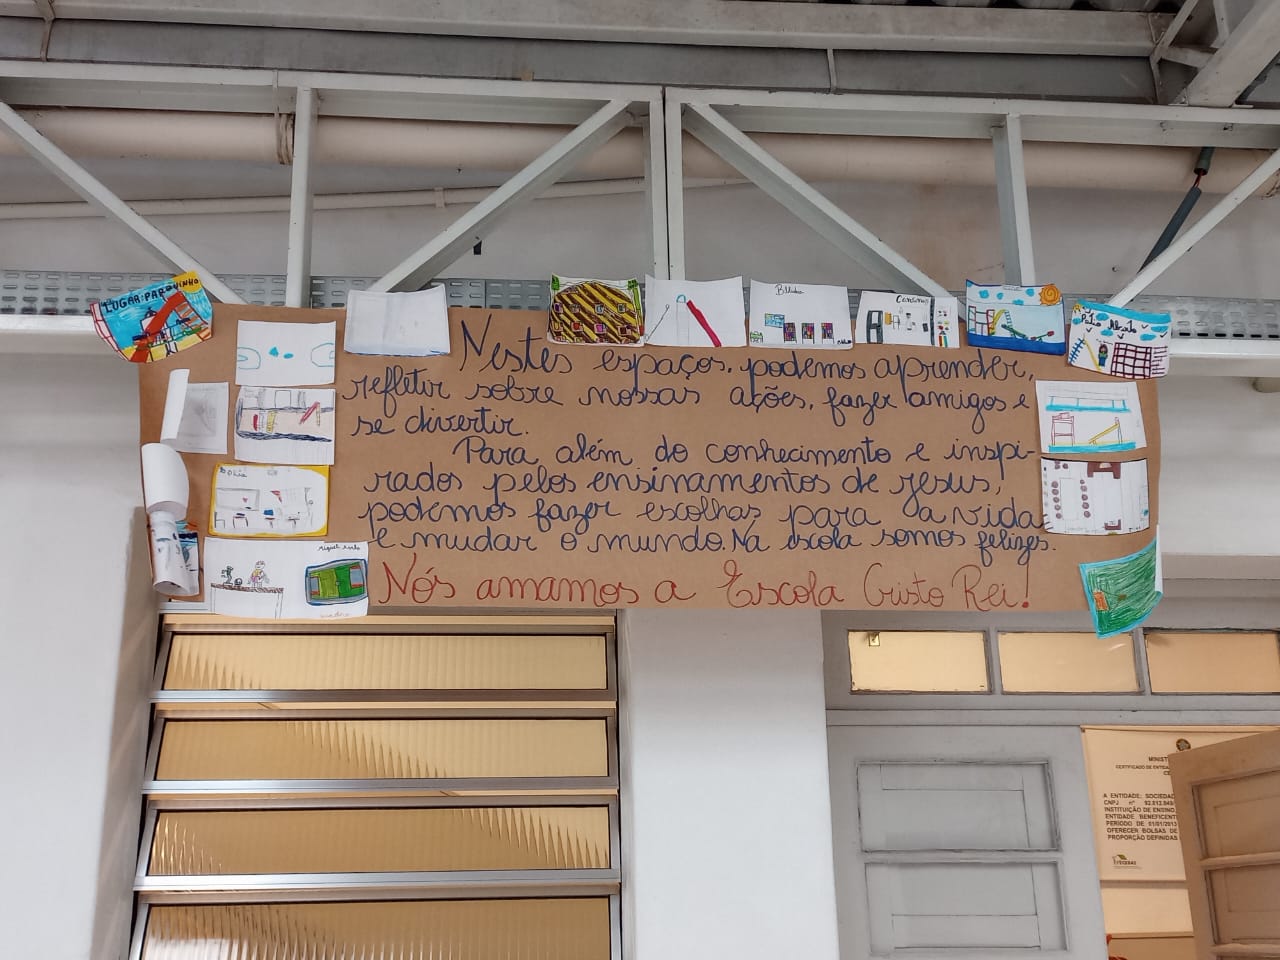 LUGAR: PARQUINHO
Biblioteca
Pátio Aberto
Nestes espaços, podemos aprender,
refletir sobre nossas ações, fazer amigos e
se divertir.
Para além do conhecimento e inspi-
rados pelos ensinamentos de Jesus,
podemos fazer escolhas para a vida
e mudar o mundo. Na escola somos felizes.
Nós amamos a Escola Cristo Rei!
MINIST
CERTIFICADO DE ENTID
CE
A ENTIDADE: SOCIEDAD
CNPJ nº 92.812.049/
INSTITUIÇÃO DE ENSINO,
ENTIDADE BENEFICENT
PERÍODO DE 01/01/2013
OFERECER BOLSAS DE
PROPORÇÃO DEFINIDAS